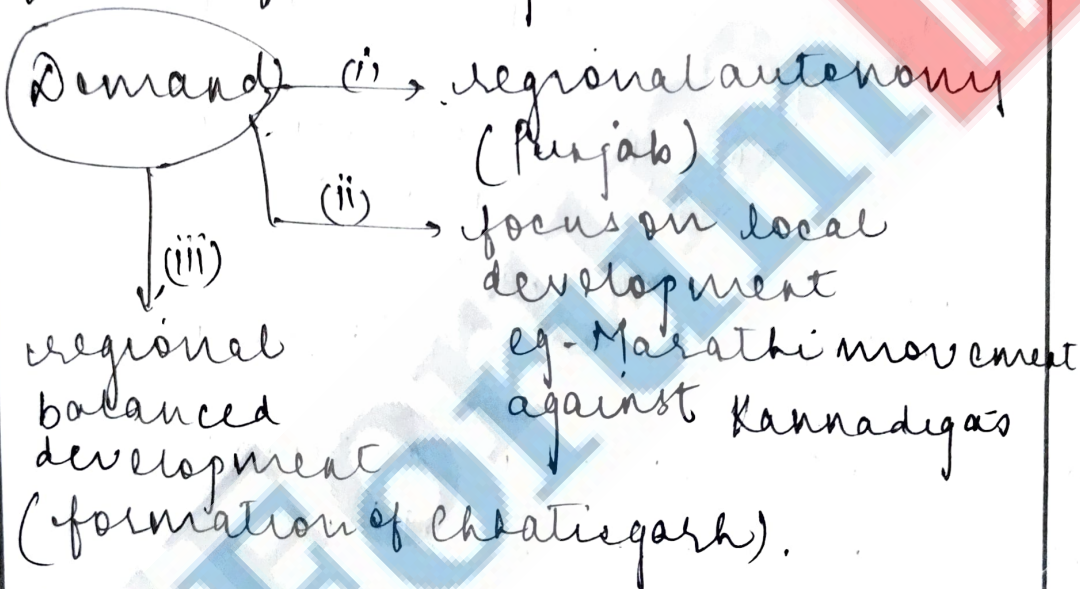 Demand (i) regional autonomy
(Punjab)
(ii) focus on local
development
eg- Marathi movement
against Kannadigas
(iii)
regional
balanced
development
(formation of Chhatisgarh).